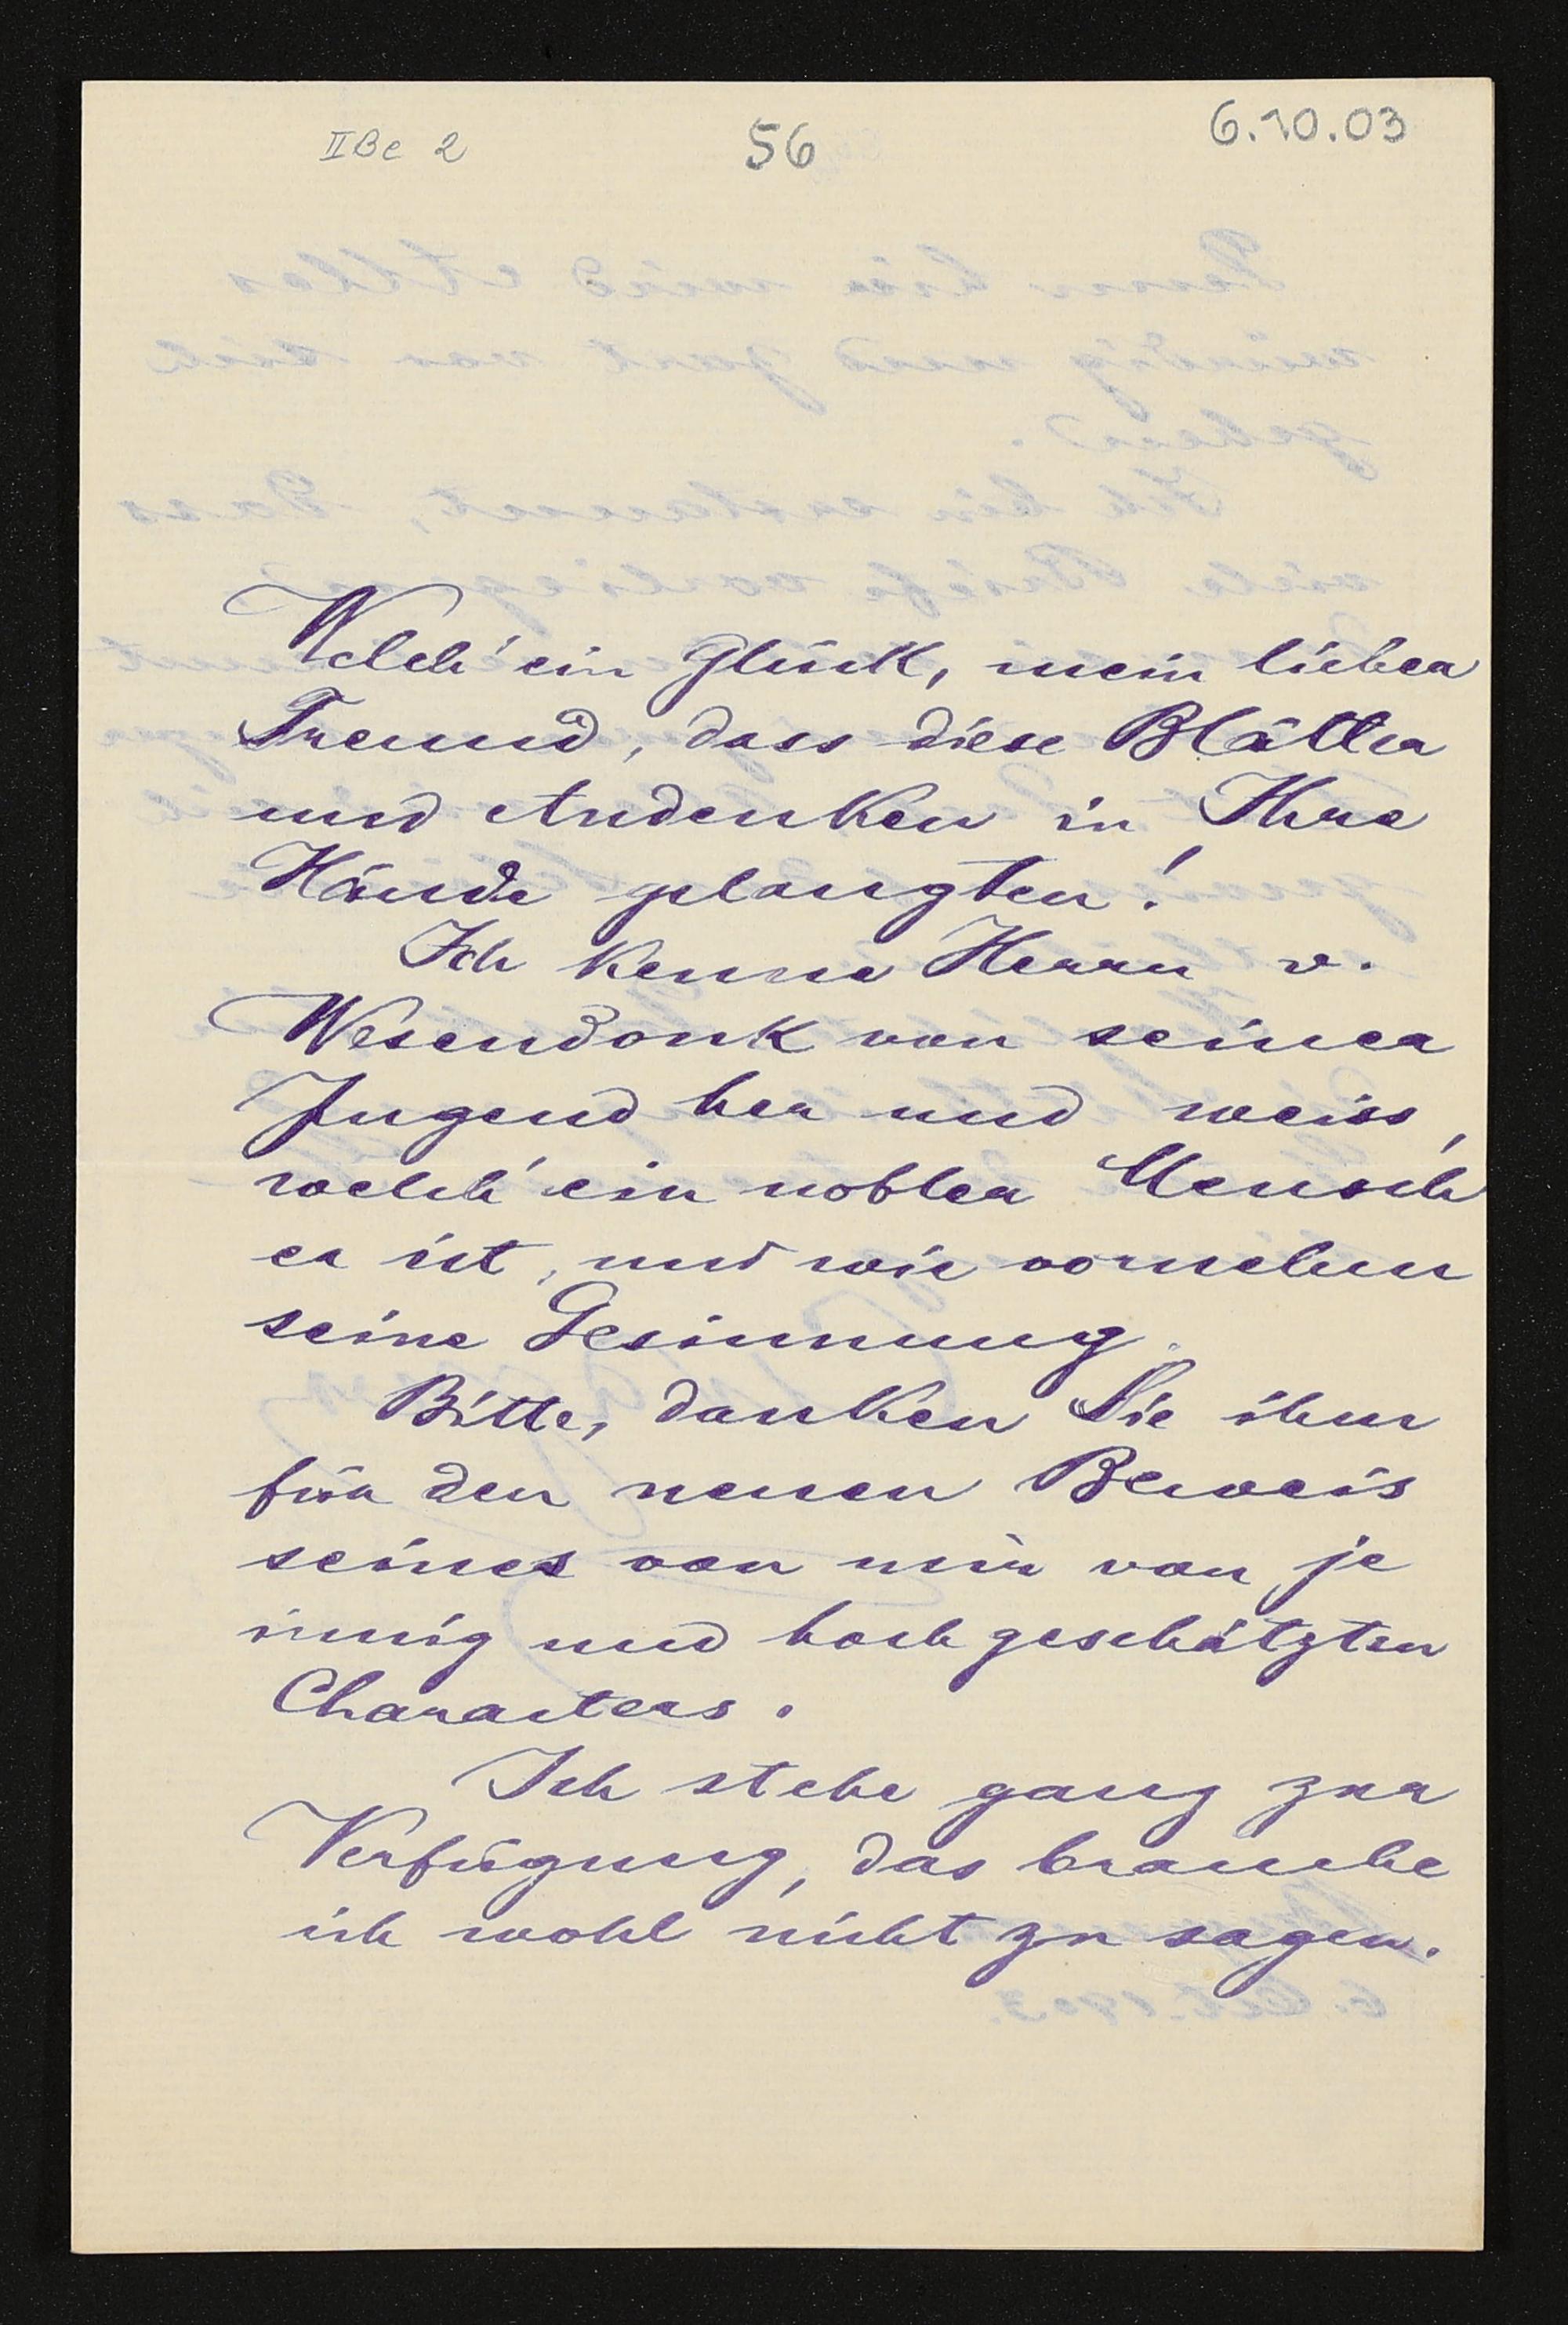 IIBe 2 56 6.10.03
Welch' ein Glück, mein lieber
Freund, dass diese Blätter
und Andenken in Ihre
Hände gelangten!
Ich kenne Herrn v.
Wesendonk von seiner
Jugend her und weiss,
welch' ein nobler Mensch
er ist, und wie vornehm
seine Gesinnung.
Bitte, danken Sie ihm
für den neuen Beweis
seines von mir von je
innig und hoch geschätzten
Characters.
Ich stehe ganz zur
Verfügung, das brauche
ich wohl nicht zu sagen.